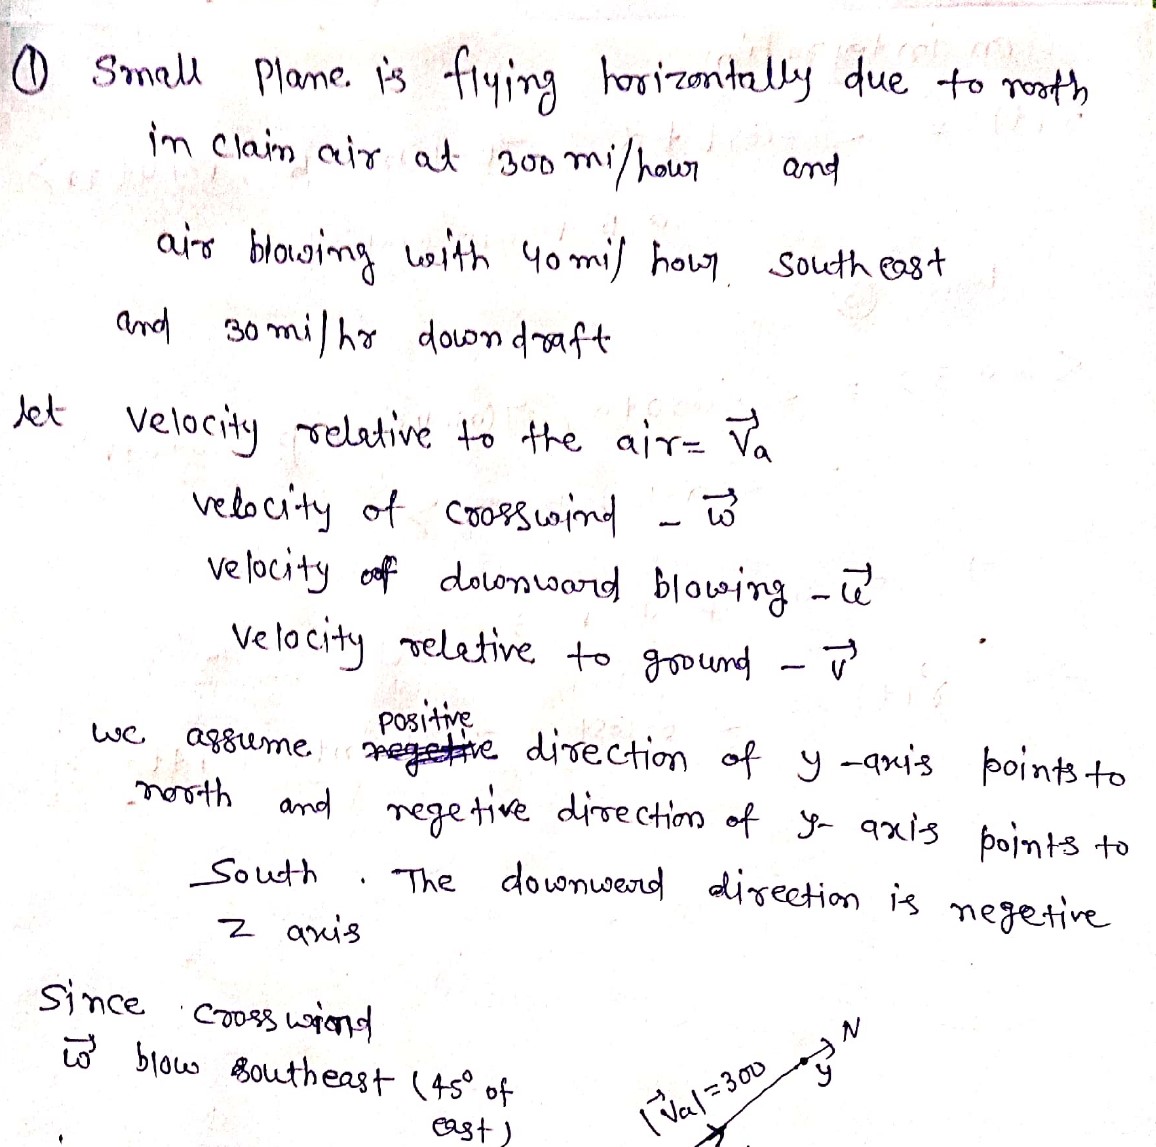 ① Small Plane is flying horizontally due to north
in clain air at 300 mi/hour and
air blowing with 40 mi/ hour southeast
and 30 mi/hr down draft
let velocity relative to the air = V⃗a
velocity of crosswind - w⃗
velocity of downward blowing - u⃗
velocity relative to ground - v⃗
positive
we assume negetive direction of y-axis points to
north and negetive direction of y- axis points to
South. The downward direction is negetive
z axis
Since crosswind
w⃗ blow southeast (45° of
east)
|V⃗a| = 300
N
y